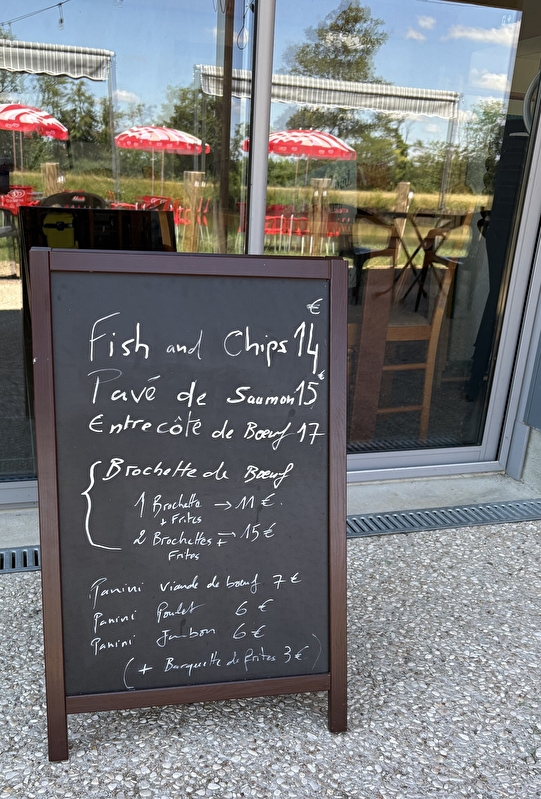 €
Fish and Chips 14
Pavé de Saumon 15€
Entrecôte de Bœuf 17
Brochette de Bœuf
1 Brochette → 11 €.
+ Frites
2 Brochettes + → 15 €
Frites
Panini viande de bœuf 7 €
Panini Poulet 6 €
Panini Jambon 6 €
(+ Barquette de frites 3 €)